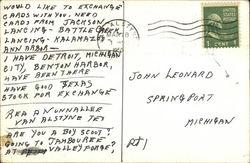 WOULD LIKE TO EXCHANGE
CARDS WITH YOU. NEED
CARDS FROM JACKSON
LANCING - BATTLE CREEK
LANCING - KALAMAZOO
ANN ARBOR -
I HAVE DETROIT, MICHIGAN
CITY, BENTON HARBOR,
HAVE BEEN THERE
HAVE GOOD TEXAS
STOCK FOR EXCHANGE
REA A NUNNALLEE
VAN ALSTYNE TEX
ARE YOU A BOY SCOUT?
GOING TO JAMBOUREE
AT VALLEY FORGE?
JOHN LEONARD
SPRINGPORT
MICHIGAN
RT 1
1